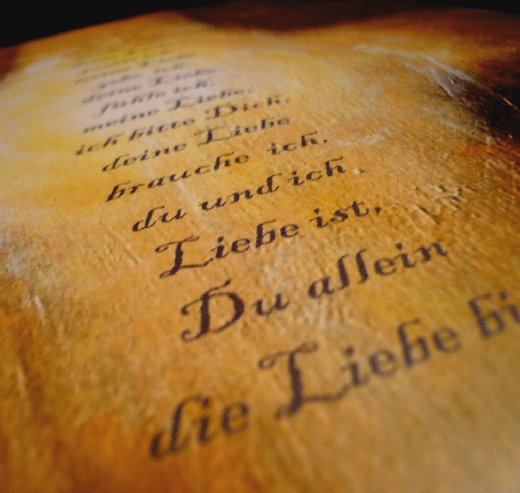 deine Liebe
fühle ich,
meine Liebe,
ich bitte Dich,
deine Liebe
brauche ich,
du und ich,
Liebe ist,
Du allein
die Liebe